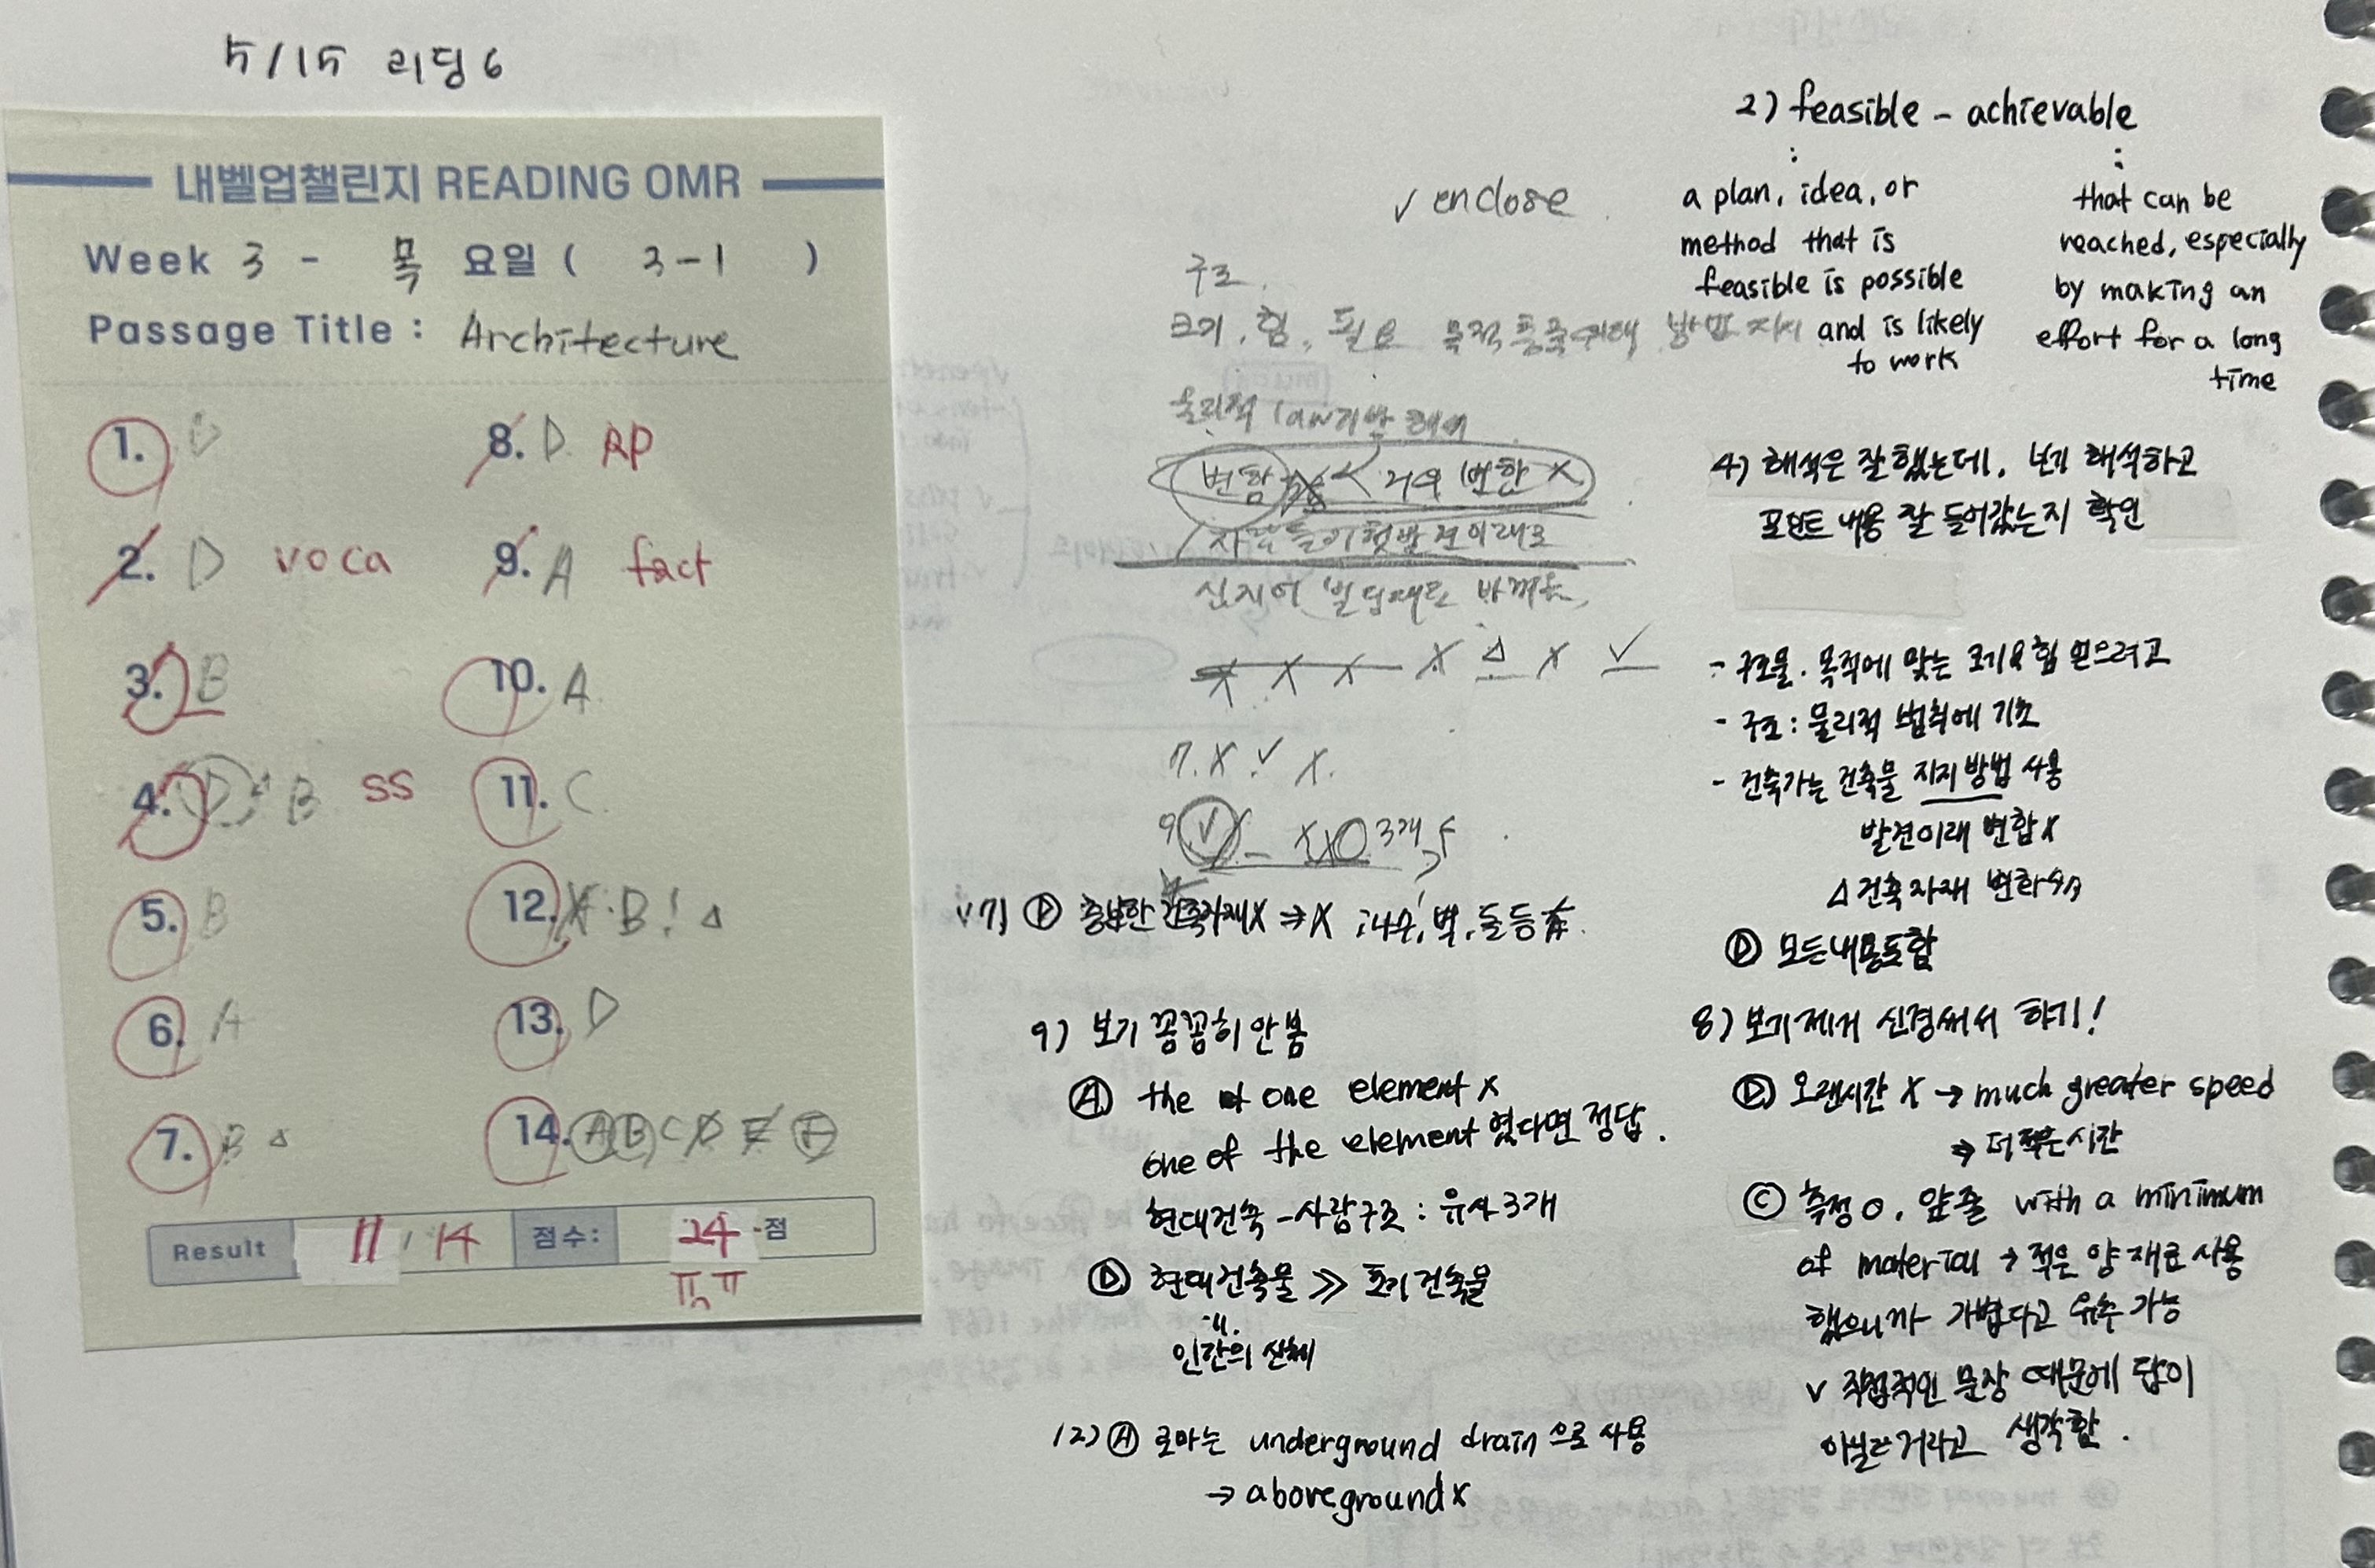 5/15 리딩 6
내벨업챌린지 READING OMR
Week 3 - 목 요일 ( 3-1 )
Passage Title : Architecture
1. D
2. D voca
3. B
4. D B SS
5. B
6. A
7. B △
8. D RP
9. A fact
10. A
11. C
12. X B! △
13. D
14. A B C D E F
Result 11 / 14 점수: 24 -점
ㅠㅠ
✓ enclose
구조
크기, 힘, 필요 목적
물리적 law기반
변함 < 거의 변한 X
심지어 빌딩재료 바뀌

X X X X △ X ✓
7. X ✓ X.
9 ✓ X 3개
✓7) Ⓓ 충분한 건축자재X ⇒ X 나무, 벽, 돌 등
9) 보기 꼼꼼히 안 봄
Ⓐ the one element X
one of the element 였다면 정답.
현대건축 - 사람구조 : 유사 3개
Ⓓ 현대건축물 ≫ 초기 건축물
인간의 신체
12) Ⓐ 로마는 underground drain으로 사용
→ aboveground X
2) feasible - achievable
: :
a plan, idea, or
method that is
feasible is possible
and is likely
to work
that can be
reached, especially
by making an
effort for a long
time
4) 해석은 잘했는데, 보기 해석하고
포인트 내용 잘 들어갔는지 확인
- 구조물. 목적에 맞는 크기&힘 얻으려고
- 구조 : 물리적 법칙에 기초
- 건축가는 건축물 지지 방법 사용
발견이래 변함 X
△ 건축자재 변화
Ⓓ 모든내용포함
8) 보기제거 신경써서 하기!
Ⓓ 오랜시간 X → much greater speed
⇒ 더 적은 시간
Ⓒ 측정 O, 앞줄 with a minimum
of material → 적은 양 재료 사용
했으니까 가볍다고 유추 가능
✓ 직접적인 문장 때문에 답이
아닐 거라고 생각함.